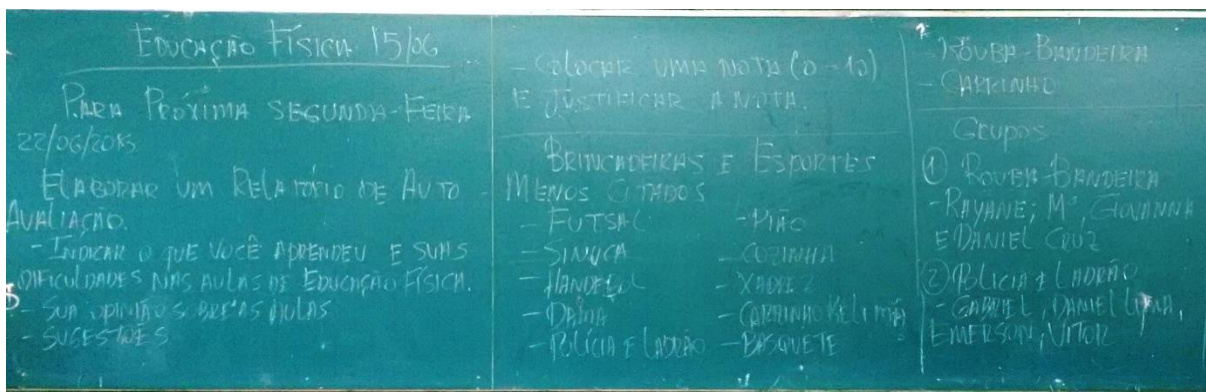 EDUCAÇÃO FÍSICA 15/06
PARA PRÓXIMA SEGUNDA-FEIRA
22/06/2015
ELABORAR UM RELATÓRIO DE AUTO
AVALIAÇÃO.
- INDICAR O QUE VOCÊ APRENDEU E SUAS
DIFICULDADES NAS AULAS DE EDUCAÇÃO FÍSICA.
- SUA OPINIÃO SOBRE AS AULAS
- SUGESTÕES
- COLOCAR UMA NOTA (0-10)
E JUSTIFICAR A NOTA.
BRINCADEIRAS E ESPORTES
MENOS CITADOS
- FUTSAL - PIÃO
- SINUCA - COZINHA
- HANDEBOL - XADREZ
- DAMA - CARRINHO
- POLÍCIA E LADRÃO - BASQUETE
- ROUBA-BANDEIRA
- CARRINHO
GRUPOS
① ROUBA-BANDEIRA
- RAYANE, Mª, GIOVANNA
E DANIEL CRUZ
② POLICIA E LADRÃO
- GABRIEL, DANIEL LIMA,
EMERSON, VITOR